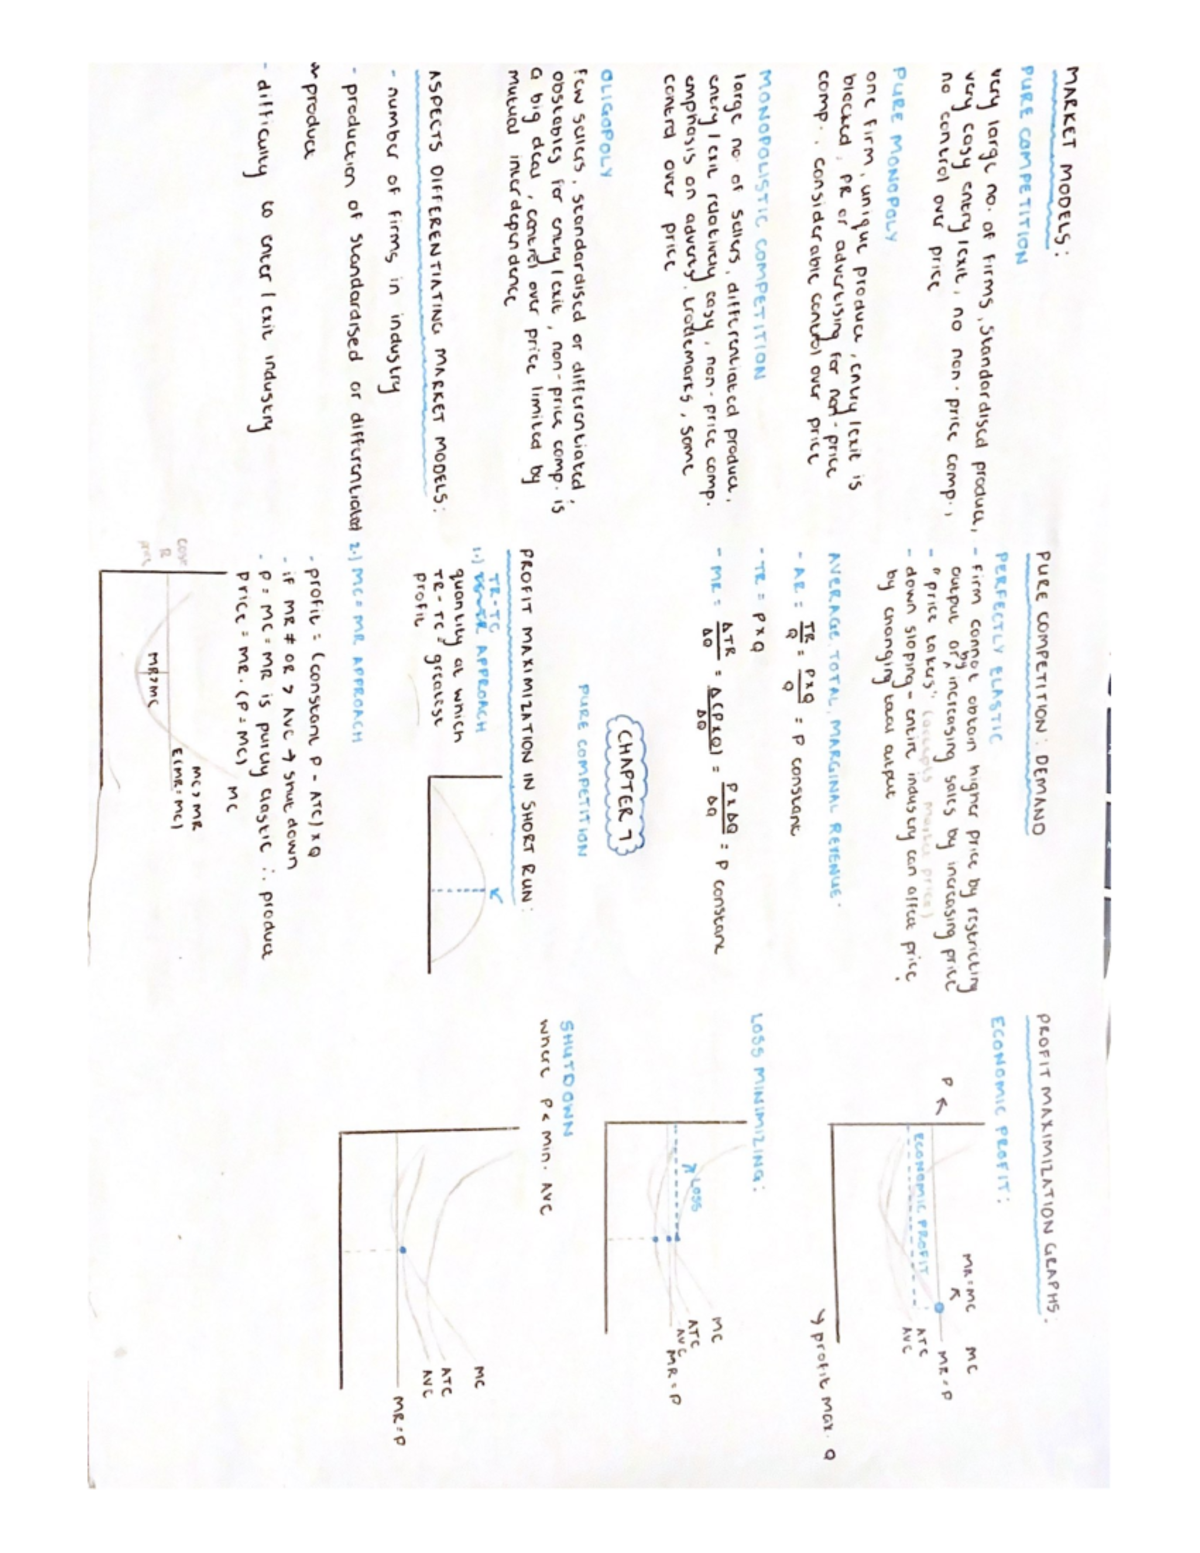 MARKET MODELS:
PURE COMPETITION
very large no. of firms, standardised product,
very easy entry/exit, no non-price comp.,
no control over price
PURE MONOPOLY
one firm, unique product, entry/exit is
blocked, PR or advertising for non-price
comp., considerable control over price
MONOPOLISTIC COMPETITION
large no. of sellers, differentiated product,
entry/exit relatively easy, non-price comp.
emphasis on advert, trademarks, some
control over price
OLIGOPOLY
few sellers, standardised or differentiated,
obstacles for entry/exit, non-price comp. is
a big deal, control over price limited by
mutual interdependence
ASPECTS DIFFERENTIATING MARKET MODELS:
- number of firms in industry
- production of standardised or differentiated
product
- difficulty to enter/exit industry
PURE COMPETITION: DEMAND
PERFECTLY ELASTIC
- firm cannot obtain higher price by restricting
output or by increasing sales by increasing price
- "price takers" (accepts market price)
- down sloping - entire industry can affect price
by changing total output
AVERAGE, TOTAL, MARGINAL REVENUE.
- AR = TR/Q = PxQ/Q = P constant
- TR = PxQ
- MR = ΔTR/ΔQ = Δ(PxQ)/ΔQ = PxΔQ/ΔQ = P constant
CHAPTER 7
PURE COMPETITION
PROFIT MAXIMIZATION IN SHORT RUN:
1.) TR-TC APPROACH
quantity at which
TR-TC = greatest
profit
2.) MC=MR APPROACH
- profit = (constant P - ATC) x Q
- if MR ≠ OR > AVC → shut down
- P = MC = MR is purely elastic ∴ product
price = MR. (P=MC)
MC
MC>MR
E(MR=MC)
MR>MC
cost
R
PROFIT MAXIMIZATION GRAPHS:
ECONOMIC PROFIT:
P
MR=MC
MC
MR=P
ECONOMIC PROFIT
ATC
AVC
↳ profit max. Q
LOSS MINIMIZING:
LOSS
MC
ATC
AVC
MR=P
SHUTDOWN
where P < min. AVC
MC
ATC
AVC
MR=P